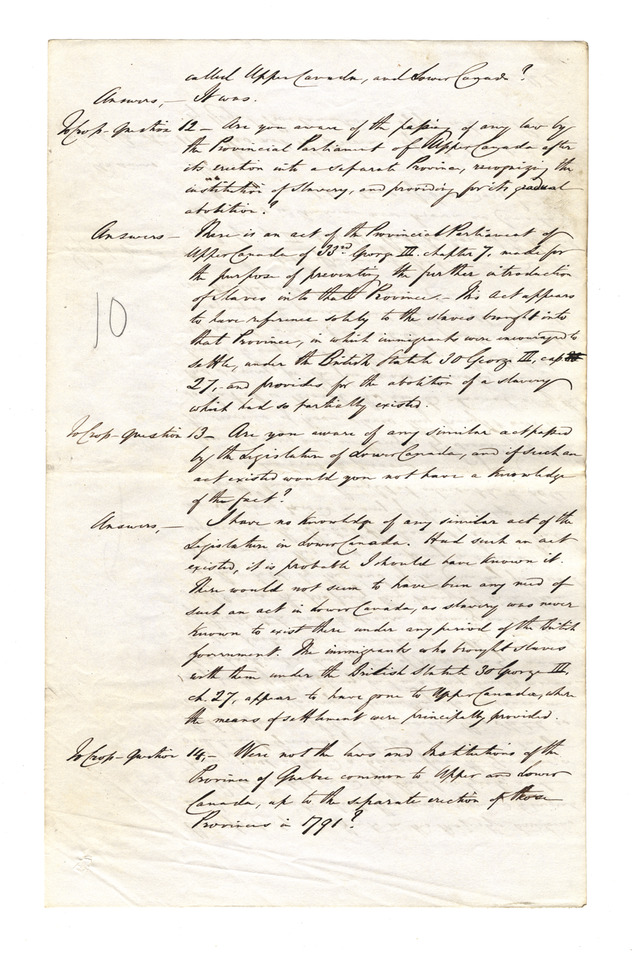 called Upper Canada, and Lower Canada?
Answers, — It was.
To Cross-Question 12 — Are you aware of the passing of any law by
the Provincial Parliament of Upper Canada after
its erection into a separate Province, recognizing the
institution of Slavery, and providing for its gradual
abolition?
Answers — There is an act of the Provincial Parliament of
Upper Canada of 33rd George III. chapter 7, made for
the purpose of preventing the further introduction
of Slaves into that Province — This Act appears
to have reference solely to the slaves brought into
that Province, in which immigrants were encouraged to
settle, under the British Statute 30 George III, cap
27, and provides for the abolition of a slavery
which had so partially existed.
10
To Cross-Question 13 — Are you aware of any similar act passed
by the Legislature of Lower Canada, and if such an
act existed would you not have a knowledge
of the fact?
Answers, — I have no knowledge of any similar act of the
Legislature in Lower Canada. Had such an act
existed, it is probable I should have known it.
There would not seem to have been any need of
such an act in Lower Canada, as slavery was never
known to exist there under any period of the British
government. The immigrants who brought slaves
with them under the British Statute 30 George III,
ch. 27, appear to have gone to Upper Canada, where
the means of settlement were principally provided.
To Cross-Question 14, — Were not the laws and Institutions of the
Province of Quebec common to Upper and Lower
Canada, up to the separate erection of those
Provinces in 1791?